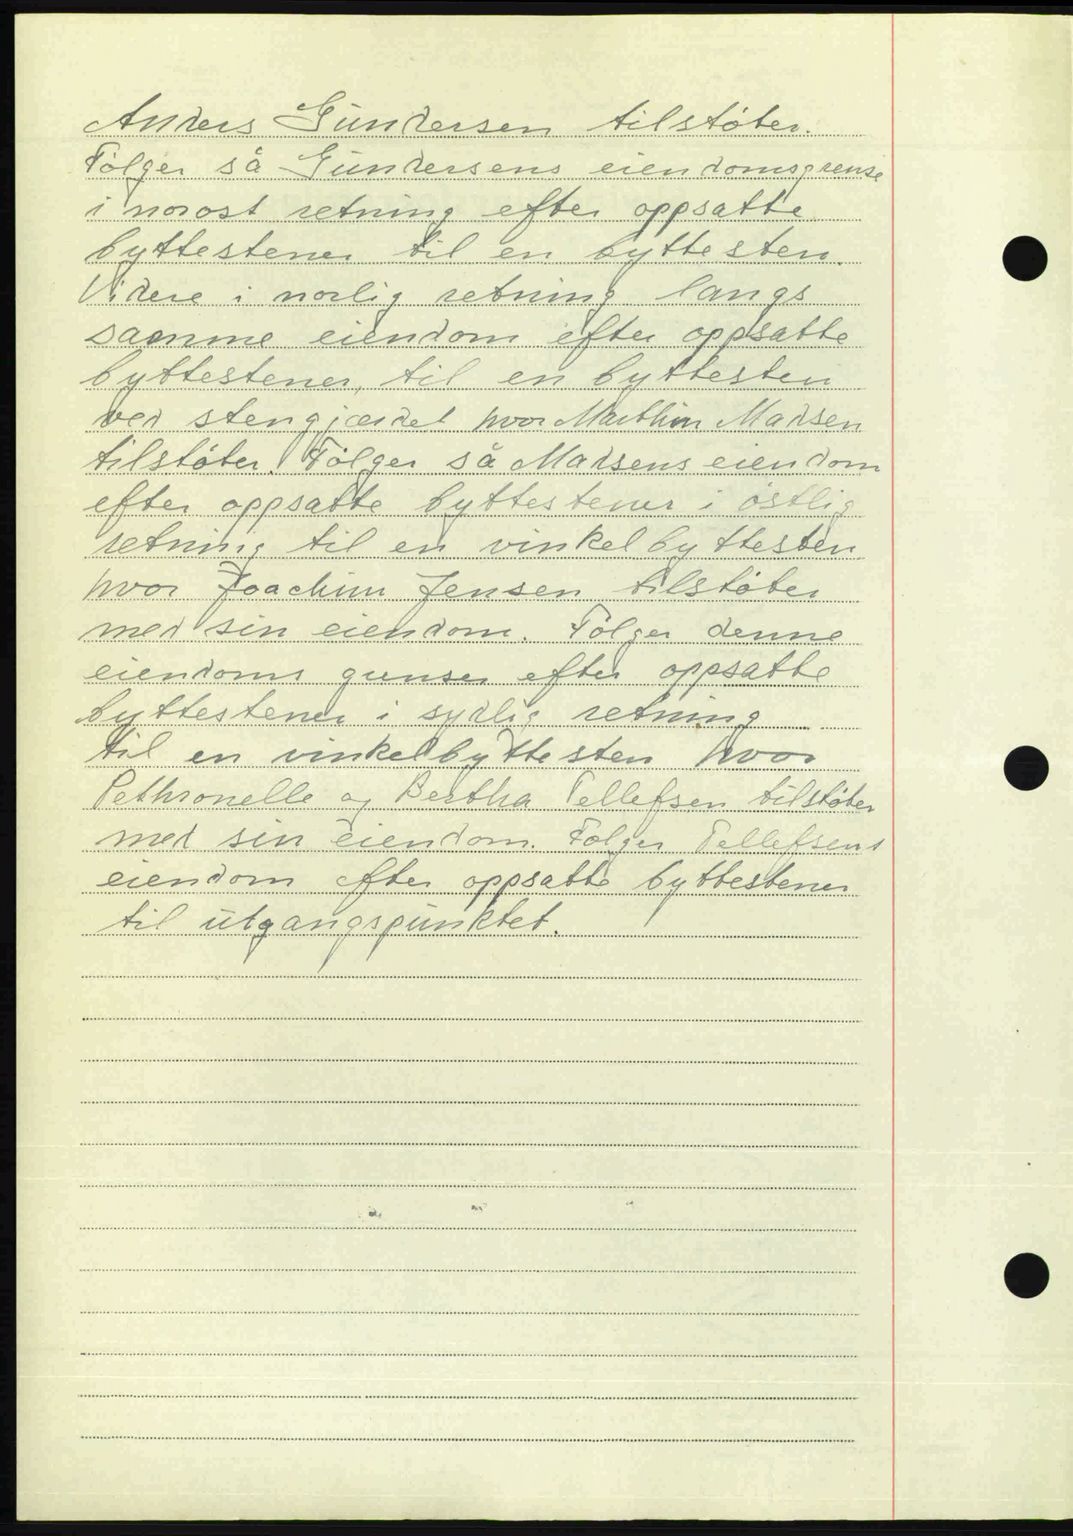 Anders Gundersen tilstøter.
Følger så Gundersens eiendomsgrense
i norost retning efter oppsatte
byttestener til en byttesten.
Videre i nordlig retning langs
samme eiendom efter oppsatte
byttestener, til en byttesten
ved stengjærdet hvor Marthin Madsen
tilstøter. Følger så Madsens eiendom
efter oppsatte byttestener i østlig
retning til en vinkelbyttesten
hvor Joachim Jensen tilstøter
med sin eiendom. Følger denne
eiendoms grenser efter oppsatte
byttestener i sydlig retning
til en vinkelbyttesten hvor
Pethronelle og Bertha Tellefsen tilstøter
med sin eiendom. Følger Tellefsens
eiendom efter oppsatte byttestener
til utgangspunktet.